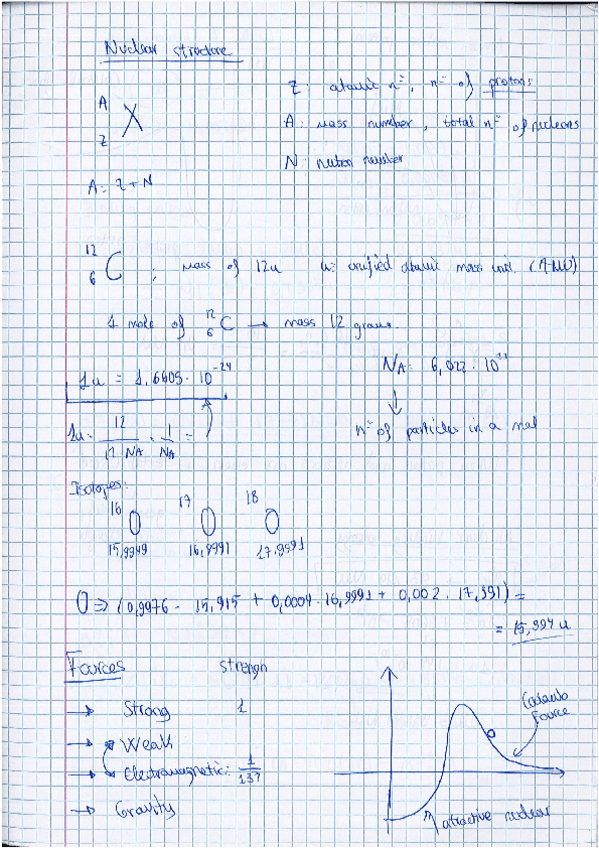 Nuclear structure
A
Z X
Z: atomic nº, nº of protons
A: mass number, total nº of nucleons
N: nutron number
A = Z + N
12
6 C ; mass of 12u u: unified atomic mass unit. (AMU)
1 mole of 12 6 C → mass 12 grams.
1u = 1,6605 · 10^-24
NA: 6,022 · 10
nº of particles in a mol
1u = 12 / NA · 1 / NA =
Isotopes:
16 O 17 O 18 O
15,9949 16,9991 17,9991
O => (0,9976 - 15,915 + 0,0004 · 16,9991 + 0,002 · 17,991) =
= 15,994 u
Fources strengh
→ Strong 1
→ Weak
→ Electromagnetic: 1/137
→ Gravity
Coulomb
Fource
attractive nuclear